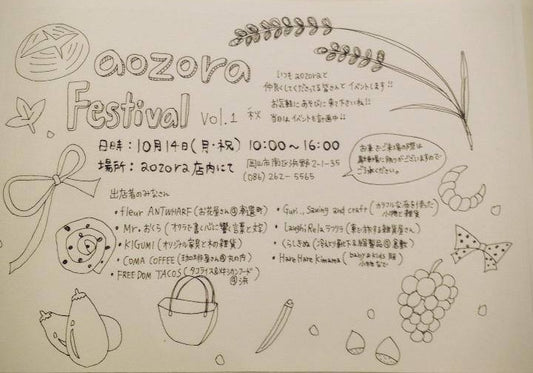 aozora
Festival vol.1 秋
いつもaozoraと
仲良くしてくださってる皆さんとイベントします!!
お気軽にあそびに来て下さいね!!
当日はイベントも計画中!!
日時:10月14日(月・祝) 10:00~16:00
場所:aozora店内にて
岡山市南区浜野2-1-35
(086)262-5565
お車でご来場の際は
駐車場に限りがございますので
ご了承ください。
出店者のみなさん
・fleur ANTWHARF(お花屋さん@奉還町)
・Mr.おくら
・KIGUMI(オリジナル家具と木の雑貨)
・COMA COFFEE(珈琲屋さん@丸の内)
・FREEDOM TACOS(タコライス&メキシカンフード
@浜
・Guri.. Sewing and craft(カラフルな布を使った
小物と雑貨
・Laughi Rela ラフリラ(旅する雑貨屋さん)
・くらしきぬ
・Hare Hare Kimama(baby & kids 服
小物など